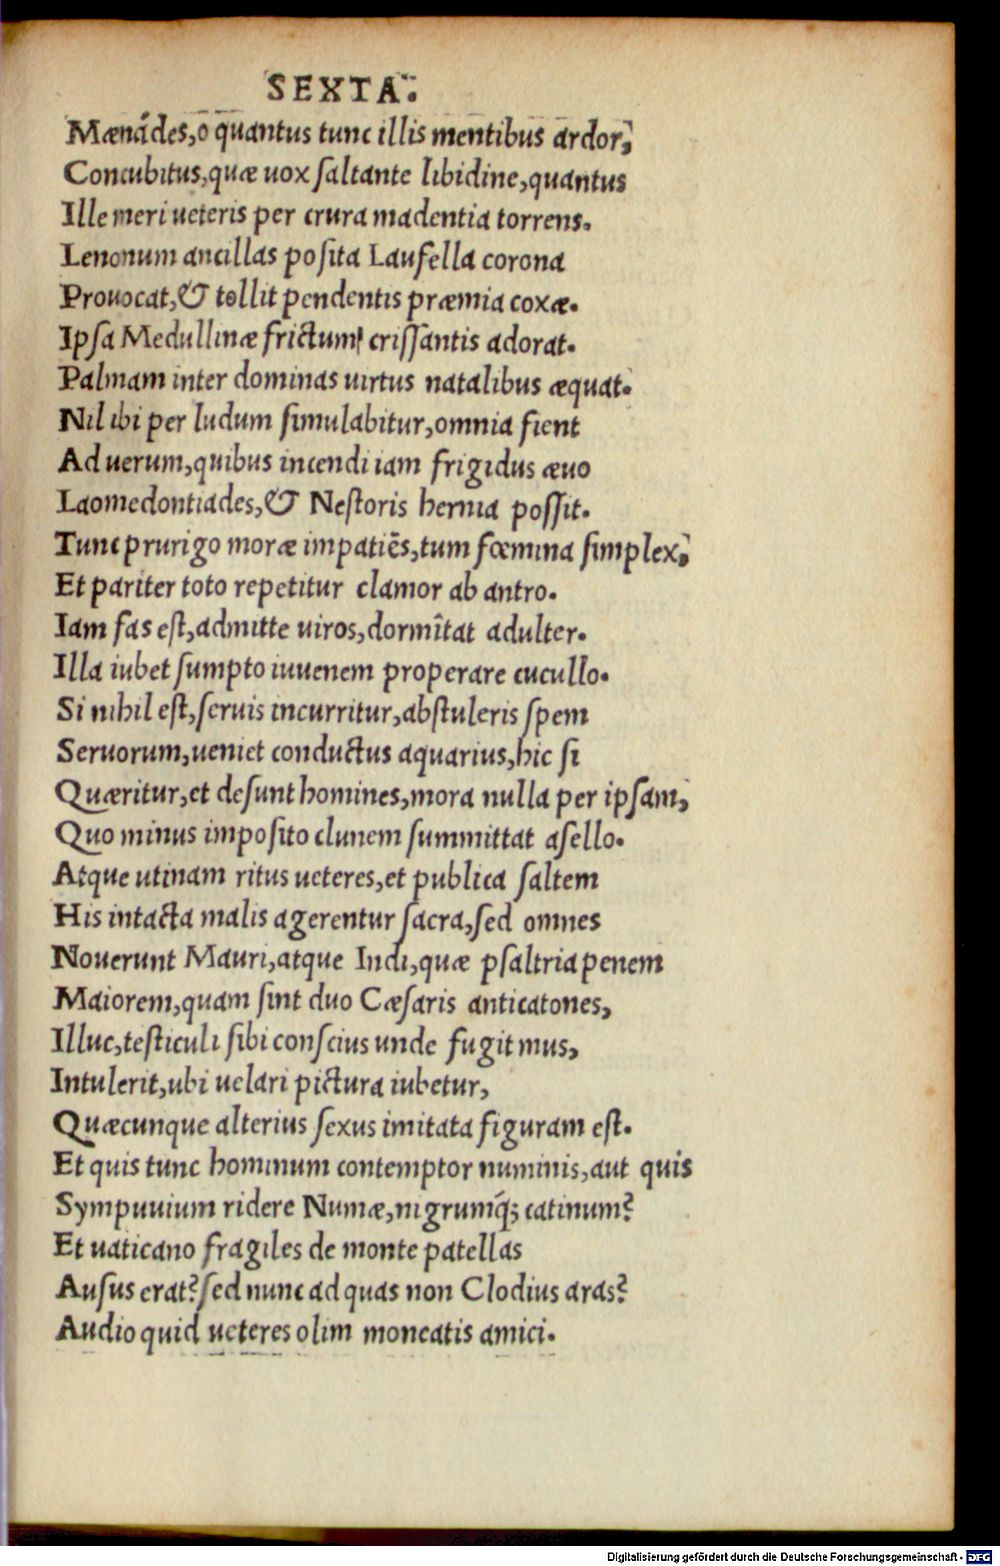 SEXTA.
Mænádes,o quantus tunc illis mentibus ardor,
Concubitus,quæ uox ſaltante libidine,quantus
Ille meri ueteris per crura madentia torrens.
Lenonum ancillas poſita Laufella corona
Prouocat,& tollit pendentis præmia coxæ.
Ipſa Medullinæ frictum criſſantis adorat.
Palmam inter dominas uirtus natalibus æquat.
Nil ibi per ludum ſimulabitur,omnia fient
Ad uerum,quibus incendi iam frigidus æuo
Laomedontiades,& Neſtoris hernia poſſit.
Tunc prurigo moræ impatiẽs,tum fœmina ſimplex,
Et pariter toto repetitur clamor ab antro.
Iam fas eſt,admitte uiros,dormîtat adulter.
Illa iubet ſumpto iuuenem properare cucullo.
Si nihil eſt,ſeruis incurritur,abſtuleris ſpem
Seruorum,ueniet conductus aquarius,hic ſi
Quæritur,et deſunt homines,mora nulla per ipſam,
Quo minus impoſito clunem ſummittat aſello.
Atque utinam ritus ueteres,et publica ſaltem
His intacta malis agerentur ſacra,ſed omnes
Nouerunt Mauri,atque Indi,quæ pſaltria penem
Maiorem,quam ſint duo Cæſaris anticatones,
Illuc,teſticuli ſibi conſcius unde fugit mus,
Intulerit,ubi uelari pictura iubetur,
Quæcunque alterius ſexus imitata figuram eſt.
Et quis tunc hominum contemptor numinis,aut quis
Sympuuium ridere Numæ,nigrumq́; catinum?
Et uaticano fragiles de monte patellas
Auſus erat?ſed nunc ad quas non Clodius aras?
Audio quid ueteres olim moneatis amici.
Digitalisierung gefördert durch die Deutsche Forschungsgemeinschaft - DFG